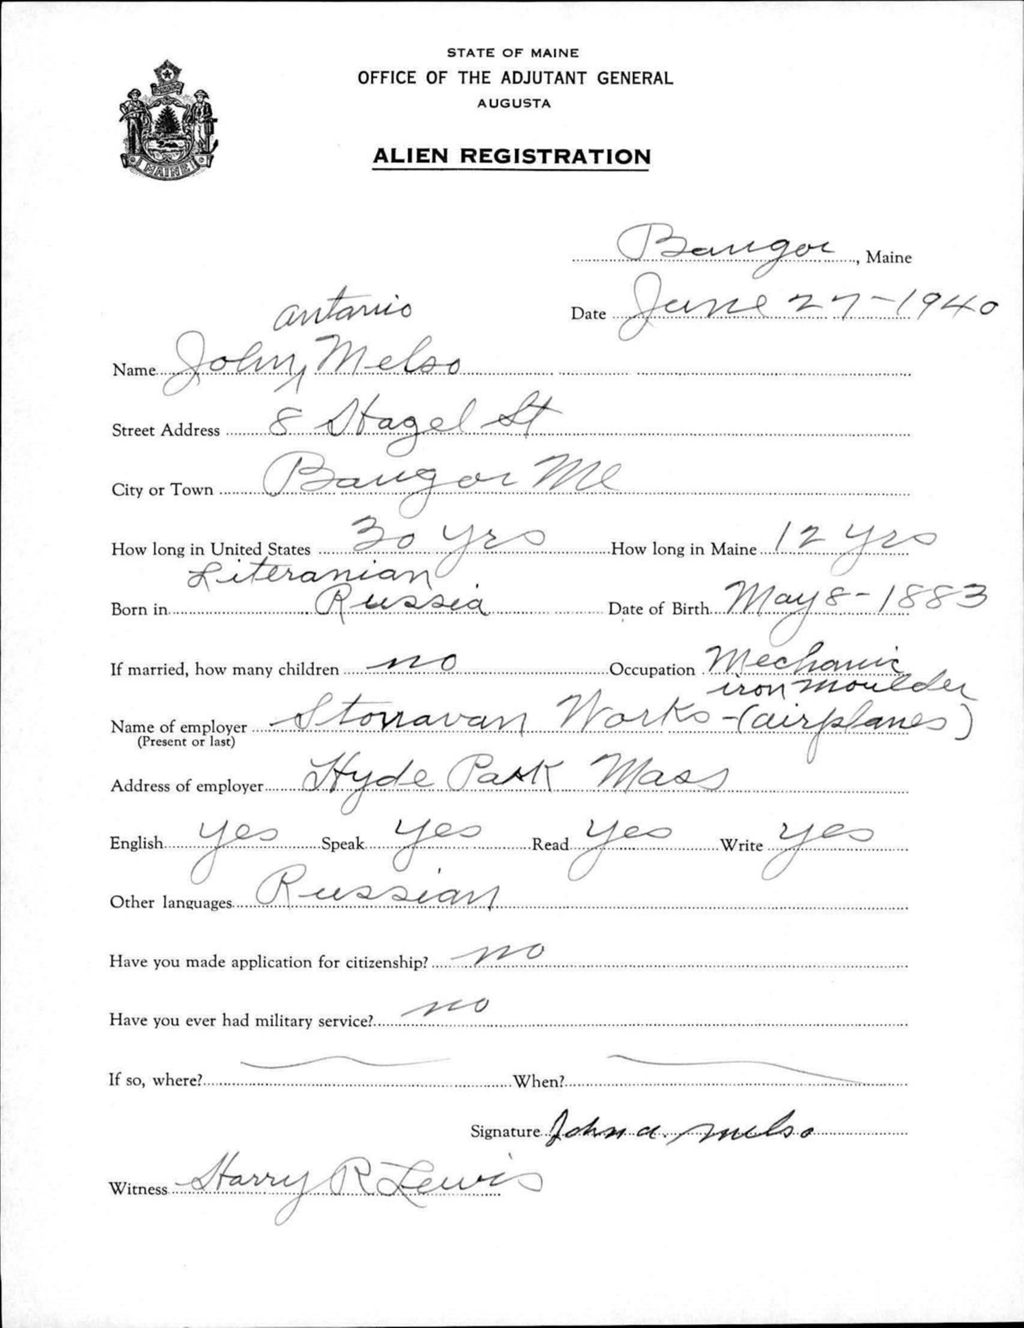 STATE OF MAINE
OFFICE OF THE ADJUTANT GENERAL
AUGUSTA
ALIEN REGISTRATION
MAINE
Bangor, Maine
Date June 27-1940
antonio
Name John Melso
Street Address 8 Hagel St
City or Town Bangor Me
How long in United States 30 yrs How long in Maine 12 yrs
Literanian
Born in Russia Date of Birth May 8-1883
If married, how many children no Occupation Mechanic
iron moulder
Name of employer Works-(airplanes)
(Present or last)
Address of employer Hyde Park Mass
English yes Speak yes Read yes Write yes
Other languages Russian
Have you made application for citizenship? no
Have you ever had military service? no
If so, where? When?
Signature John a. Melso
Witness Harry R Lewis